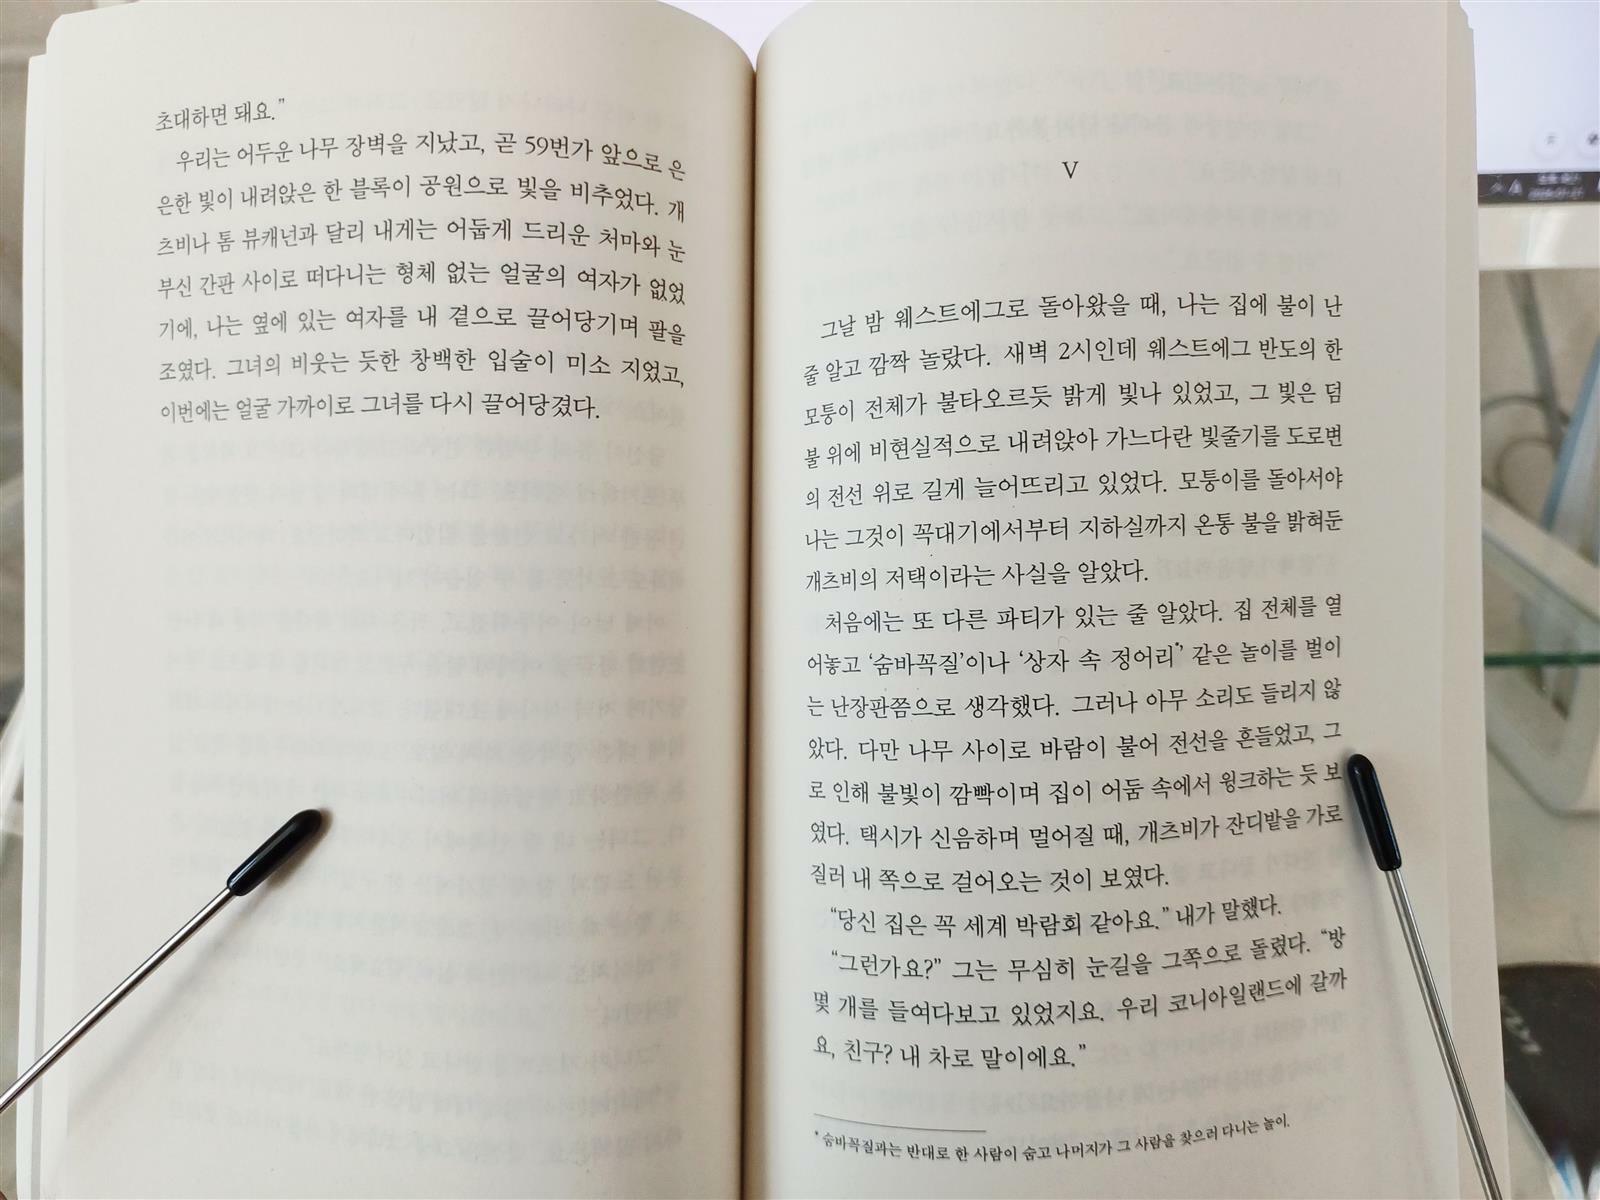 초대하면 돼요.”
우리는 어두운 나무 장벽을 지났고, 곧 59번가 앞으로 은
은한 빛이 내려앉은 한 블록이 공원으로 빛을 비추었다. 개
츠비나 톰 뷰캐넌과 달리 내게는 어둡게 드리운 처마와 눈
부신 간판 사이로 떠다니는 형체 없는 얼굴의 여자가 없었
기에, 나는 옆에 있는 여자를 내 곁으로 끌어당기며 팔을
조였다. 그녀의 비웃는 듯한 창백한 입술이 미소 지었고,
이번에는 얼굴 가까이로 그녀를 다시 끌어당겼다.
V
그날 밤 웨스트에그로 돌아왔을 때, 나는 집에 불이 난
줄 알고 깜짝 놀랐다. 새벽 2시인데 웨스트에그 반도의 한
모퉁이 전체가 불타오르듯 밝게 빛나 있었고, 그 빛은 덤
불 위에 비현실적으로 내려앉아 가느다란 빛줄기를 도로변
의 전선 위로 길게 늘어뜨리고 있었다. 모퉁이를 돌아서야
나는 그것이 꼭대기에서부터 지하실까지 온통 불을 밝혀둔
개츠비의 저택이라는 사실을 알았다.
처음에는 또 다른 파티가 있는 줄 알았다. 집 전체를 열
어놓고 ‘숨바꼭질’이나 ‘상자 속 정어리*’ 같은 놀이를 벌이
는 난장판쯤으로 생각했다. 그러나 아무 소리도 들리지 않
았다. 다만 나무 사이로 바람이 불어 전선을 흔들었고, 그
로 인해 불빛이 깜빡이며 집이 어둠 속에서 윙크하는 듯 보
였다. 택시가 신음하며 멀어질 때, 개츠비가 잔디밭을 가로
질러 내 쪽으로 걸어오는 것이 보였다.
“당신 집은 꼭 세계 박람회 같아요.” 내가 말했다.
“그런가요?” 그는 무심히 눈길을 그쪽으로 돌렸다. “방
몇 개를 들여다보고 있었지요. 우리 코니아일랜드에 갈까
요, 친구? 내 차로 말이에요.”
* 숨바꼭질과는 반대로 한 사람이 숨고 나머지가 그 사람을 찾으러 다니는 놀이.